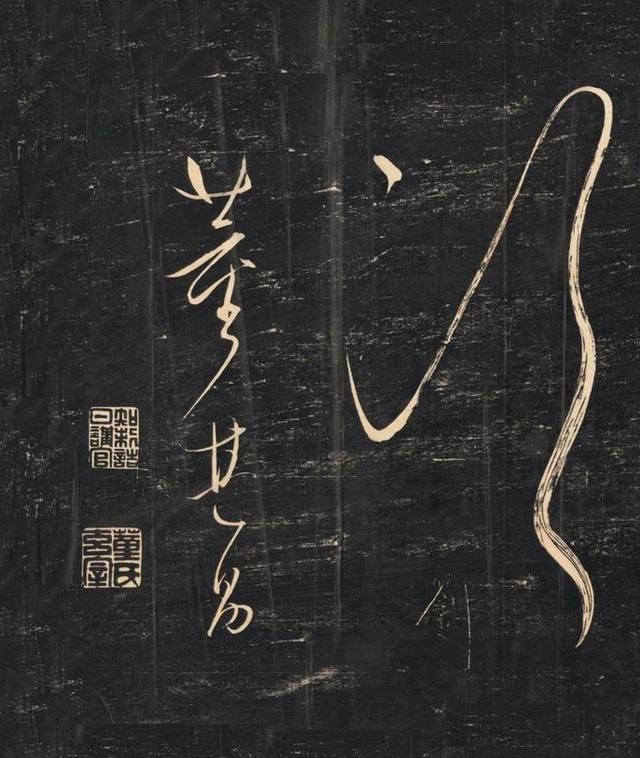 董其昌
知制誥
日講官
董氏
玄宰